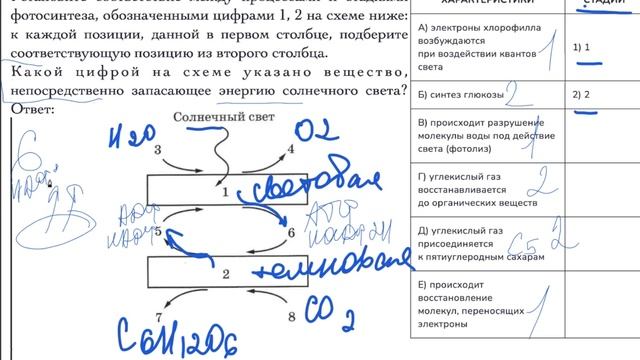 фотосинтеза, обозначенными цифрами 1, 2 на схеме ниже:
к каждой позиции, данной в первом столбце, подберите
соответствующую позицию из второго столбца.
Какой цифрой на схеме указано вещество,
непосредственно запасающее энергию солнечного света?
Ответ:
6
Солнечный свет
H2O
O2
3
4
1
световая
АДФ
АТФ
5
6
2
темновая
7
8
C6H12O6
CO2
А) электроны хлорофилла
возбуждаются
при воздействии квантов
света
1
1) 1
Б) синтез глюкозы
2
2) 2
В) происходит разрушение
молекулы воды под действие
света (фотолиз)
1
Г) углекислый газ
восстанавливается
до органических веществ
2
Д) углекислый газ
присоединяется
к пятиуглеродным сахарам
C5 2
Е) происходит
восстановление
молекул, переносящих
электроны
1